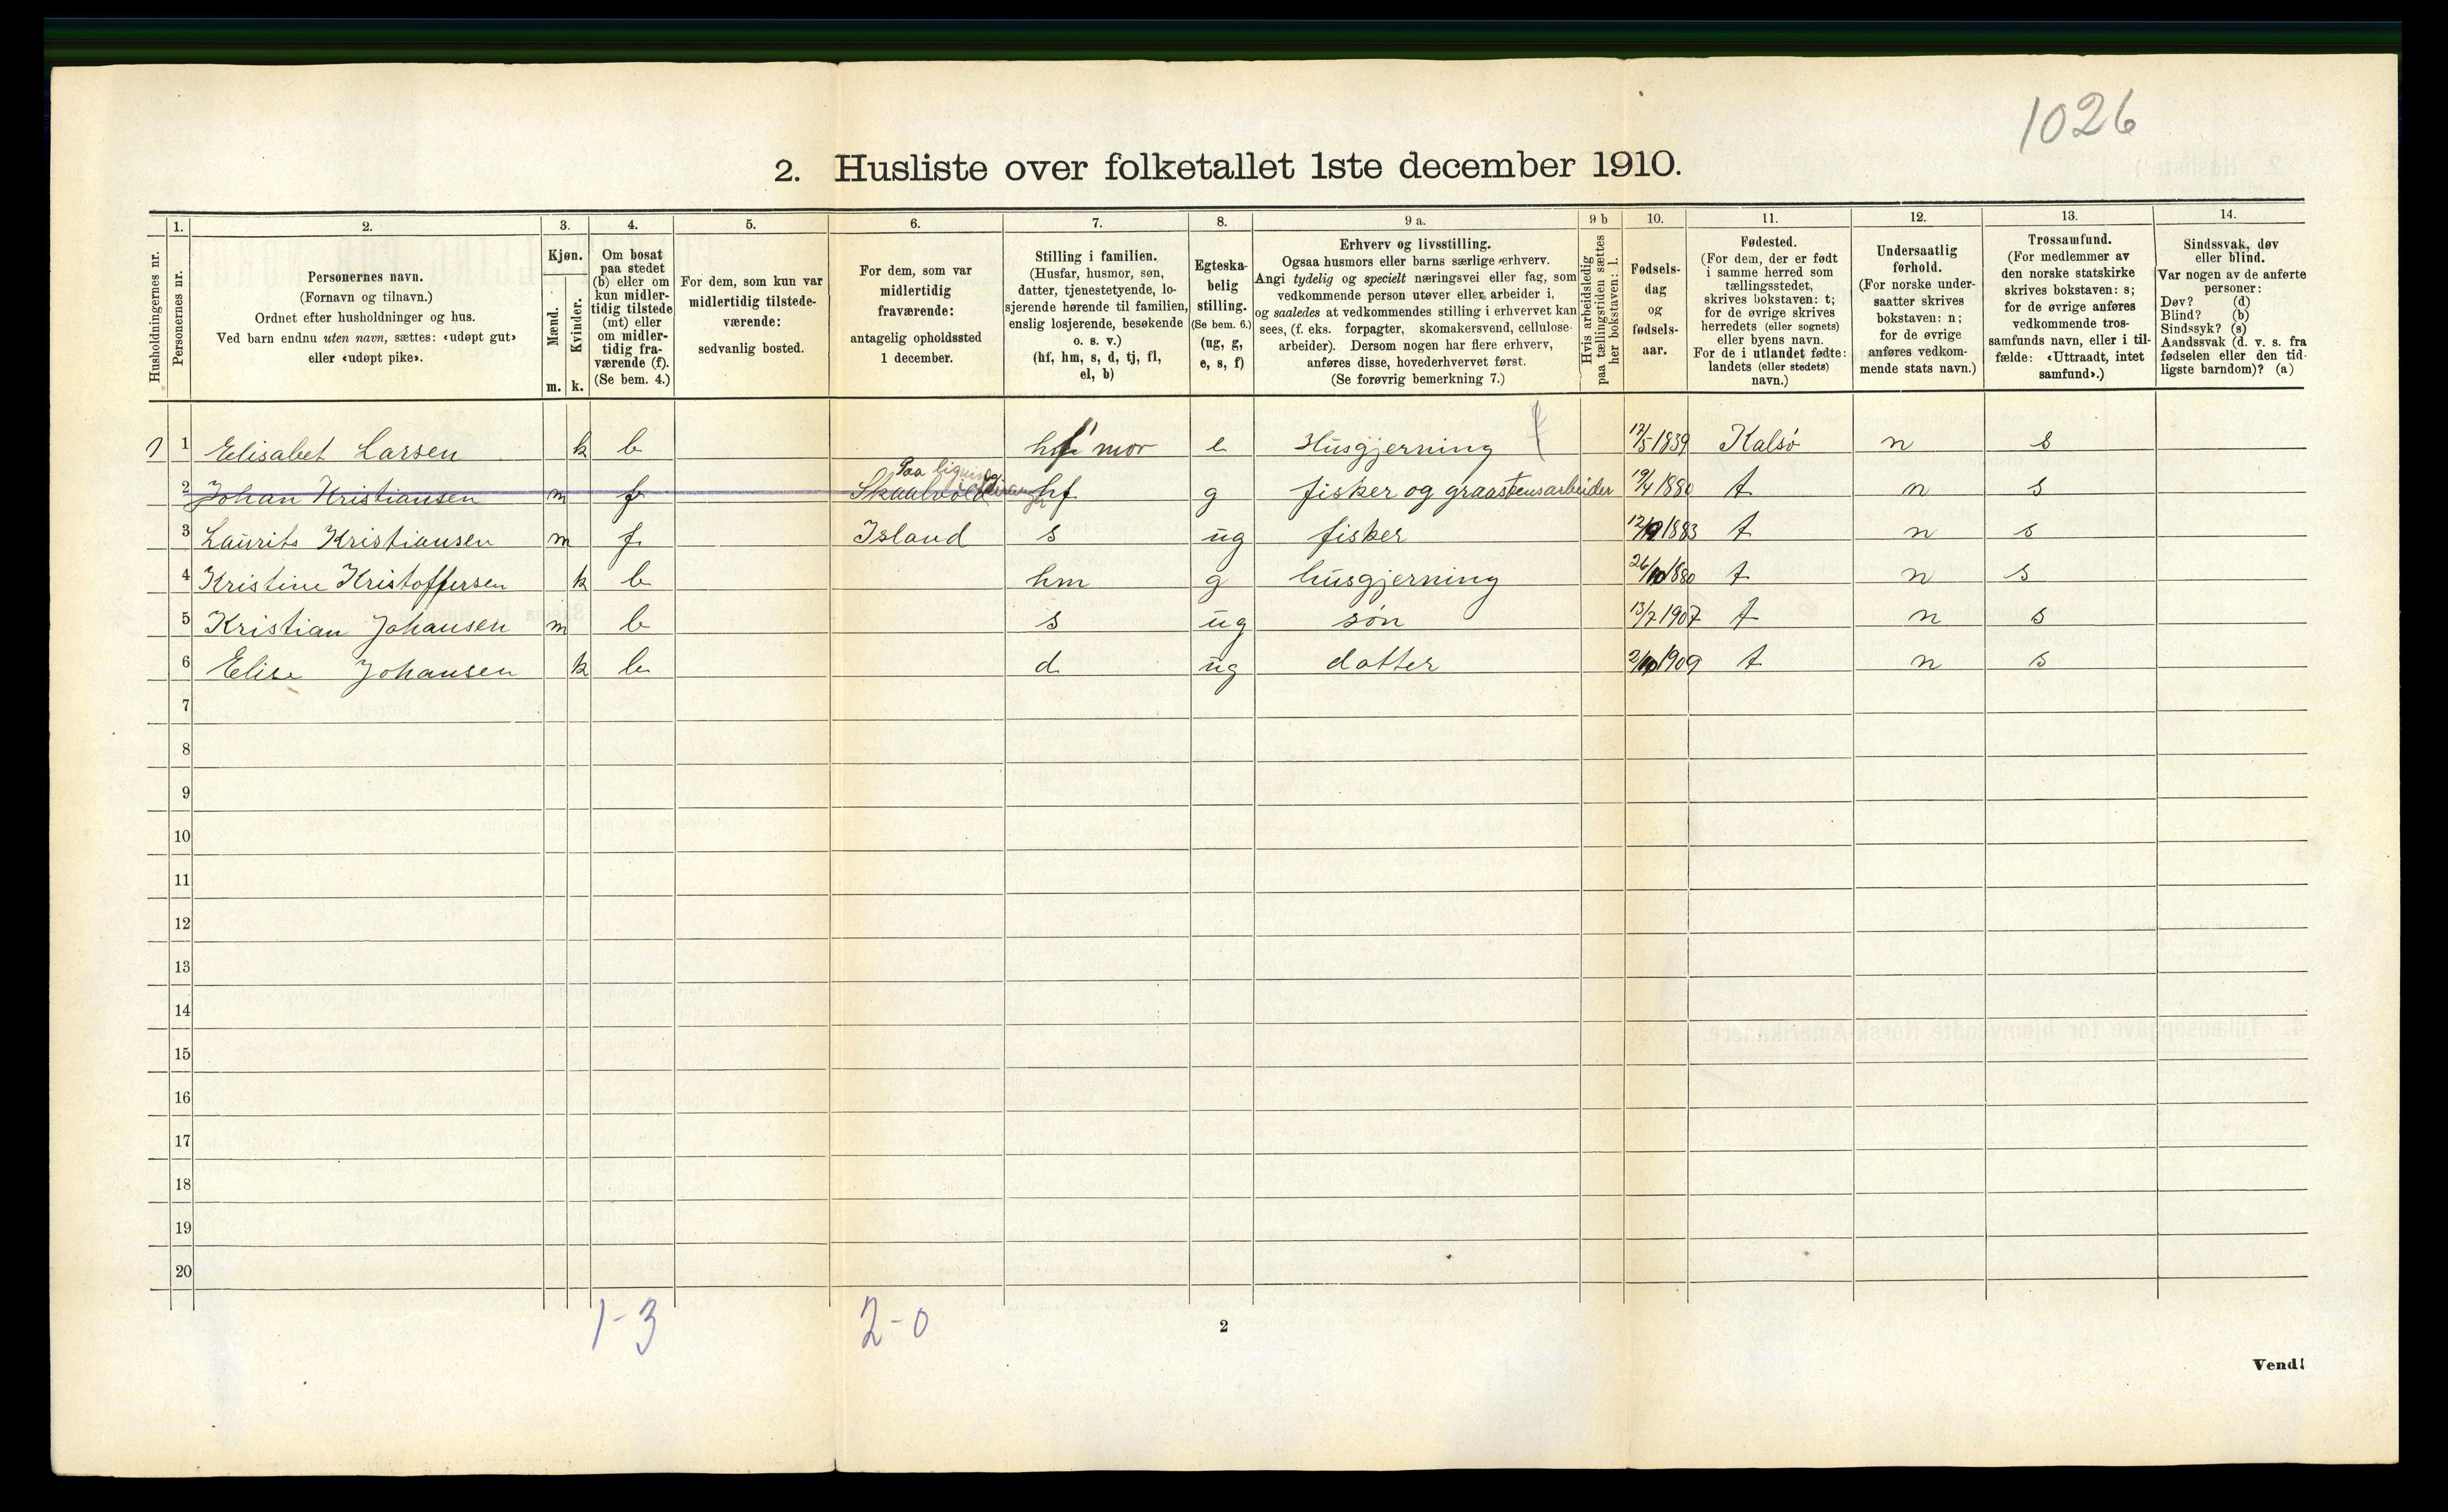 1026
2. Husliste over folketallet 1ste december 1910.
Husholdningernes nr.
1.
Personernes nr.
2.
Personernes navn.
(Fornavn og tilnavn.)
Ordnet efter husholdninger og hus.
Ved barn endnu uten navn, sættes: «udøpt gut»
eller «udøpt pike».
3.
Kjøn.
Mænd.
Kvinder.
m. k.
4.
Om bosat
paa stedet
(b) eller om
kun midler-
tidig tilstede
(mt) eller
om midler-
tidig fra-
værende (f).
(Se bem. 4.)
5.
For dem, som kun var
midlertidig tilstede-
værende:
sedvanlig bosted.
6.
For dem, som var
midlertidig
fraværende:
antagelig opholdssted
1 december.
7.
Stilling i familien.
(Husfar, husmor, søn,
datter, tjenestetyende, lo-
sjerende hørende til familien,
enslig losjerende, besøkende
o. s. v.)
(hf, hm, s, d, tj, fl,
el, b)
8.
Egteska-
belig
stilling.
(Se bem. 6.)
(ug, g,
e, s, f)
9 a.
Erhverv og livsstilling.
Ogsaa husmors eller barns særlige erhverv.
Angi tydelig og specielt næringsvei eller fag, som
vedkommende person utøver eller arbeider i,
og saaledes at vedkommendes stilling i erhvervet kan
sees, (f. eks. forpagter, skomakersvend, cellulose-
arbeider). Dersom nogen har flere erhverv,
anføres disse, hovederhvervet først.
(Se forøvrig bemerkning 7.)
9 b
Hvis arbeidsledig
paa tællingstiden sættes
her bokstaven: l.
10.
Fødsels-
dag
og
fødsels-
aar.
11.
Fødested.
(For dem, der er født
i samme herred som
tællingsstedet,
skrives bokstaven: t;
for de øvrige skrives
herredets (eller sognets)
eller byens navn.
For de i utlandet fødte:
landets (eller stedets)
navn.)
12.
Undersaatlig
forhold.
(For norske under-
saatter skrives
bokstaven: n;
for de øvrige
anføres vedkom-
mende stats navn.)
13.
Trossamfund.
(For medlemmer av
den norske statskirke
skrives bokstaven: s;
for de øvrige anføres
vedkommende tros-
samfunds navn, eller i til-
fælde: «Uttraadt, intet
samfund».)
14.
Sindssvak, døv
eller blind.
Var nogen av de anførte
personer:
Døv? (d)
Blind? (b)
Sindssyk? (s)
Aandssvak (d. v. s. fra
fødselen eller den tid-
ligste barndom)? (a)
1 1 Elisabet Larsen k b mor e Husgjerning 17/5 1839 Kalsø n s
Paa
2 Johan Kristiansen m f hf g fisker og graastensarbeider 19/4 1880 t n s
3 Laurits Kristiansen m f Island s ug fisker 1883 t n s
4 Kristine Kristoffersen k b hm g husgjerning 26/10 1880 t n s
5 Kristian Johansen m b s ug søn 13/7 1907 t n s
6 Elise Johansen k b d ug datter 2/10 1909 t n s
7
8
9
10
11
12
13
14
15
16
17
18
19
20
1-3 2-0
2
Vend!